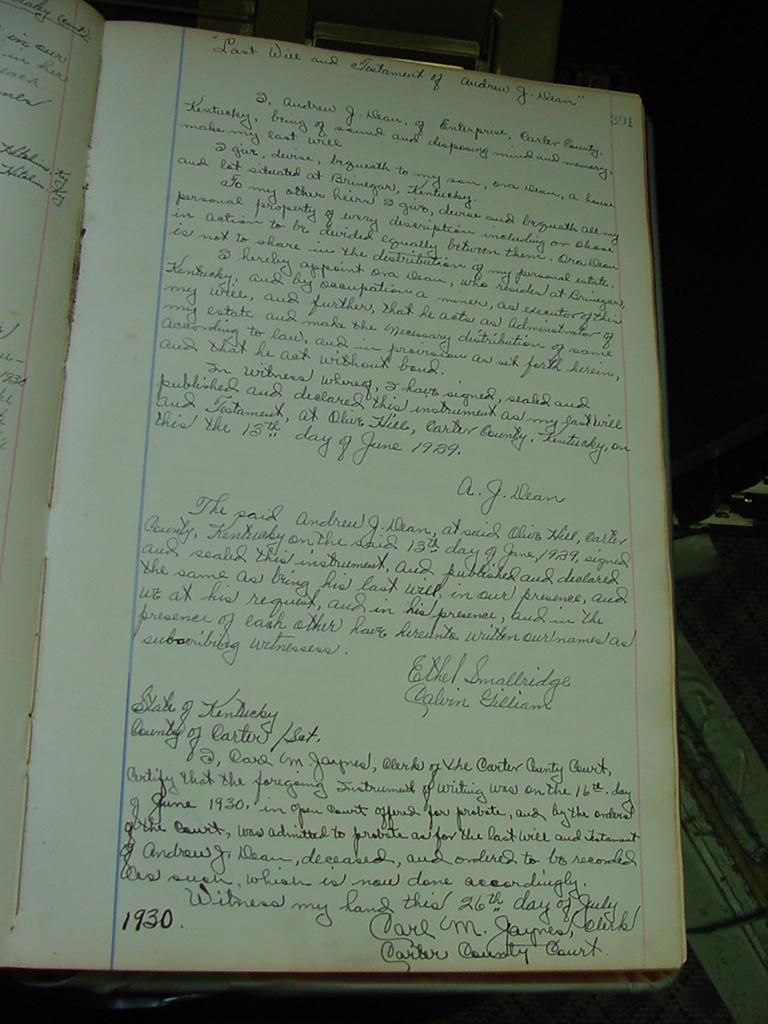 "Last Will and Testament of Andrew J. Dean"
391
I, Andrew J. Dean, of Enterprise, Carter County,
Kentucky, being of sound and disposing mind and memory,
make my last will
I give, devise, bequeath to my son, Ora Dean, a house
and lot situated at Brinegar, Kentucky.
To my other heirs I give, devise and bequeath all my
personal property of every description including or chose
in action to be divided equally between them. Ora Dean
is not to share in the distribution of my personal estate.
I hereby appoint Ora Dean, who resides at Brinegar,
Kentucky, and by occupation a miner, as executor of this
my will, and further, that he acts as Administrator of
my estate and make the necessary distribution of same
according to law, and in provision as set forth herein,
and that he act without bond.
In witness whereof, I have signed, sealed and
published and declared this instrument as my last will
and Testament, at Olive Hill, Carter County, Kentucky, on
this the 13th day of June 1929.
A. J. Dean
The said Andrew J. Dean, at said Olive Hill, Carter
County, Kentucky on the said 13th day of June, 1929, signed
and sealed this instrument, and published and declared
the same as being his last will, in our presence, and
we at his request, and in his presence, and in the
presence of each other have hereunto written our names as
subscribing witnesses.
Ethel Smallridge
Calvin Gilliam
State of Kentucky
County of Carter / Sct.
I, Carl M. Jaynes, Clerk of the Carter County Court,
Certify that the foregoing Instrument of writing was on the 16th day
of June 1930, in open court offered for probate, and by the orders
of the Court, was admitted to probate as for the last will and testament
of Andrew J. Dean, deceased, and ordered to be recorded
as such, which is now done accordingly.
Witness my hand this 26th day of July
1930.
Carl M. Jaynes, Clerk
Carter County Court.